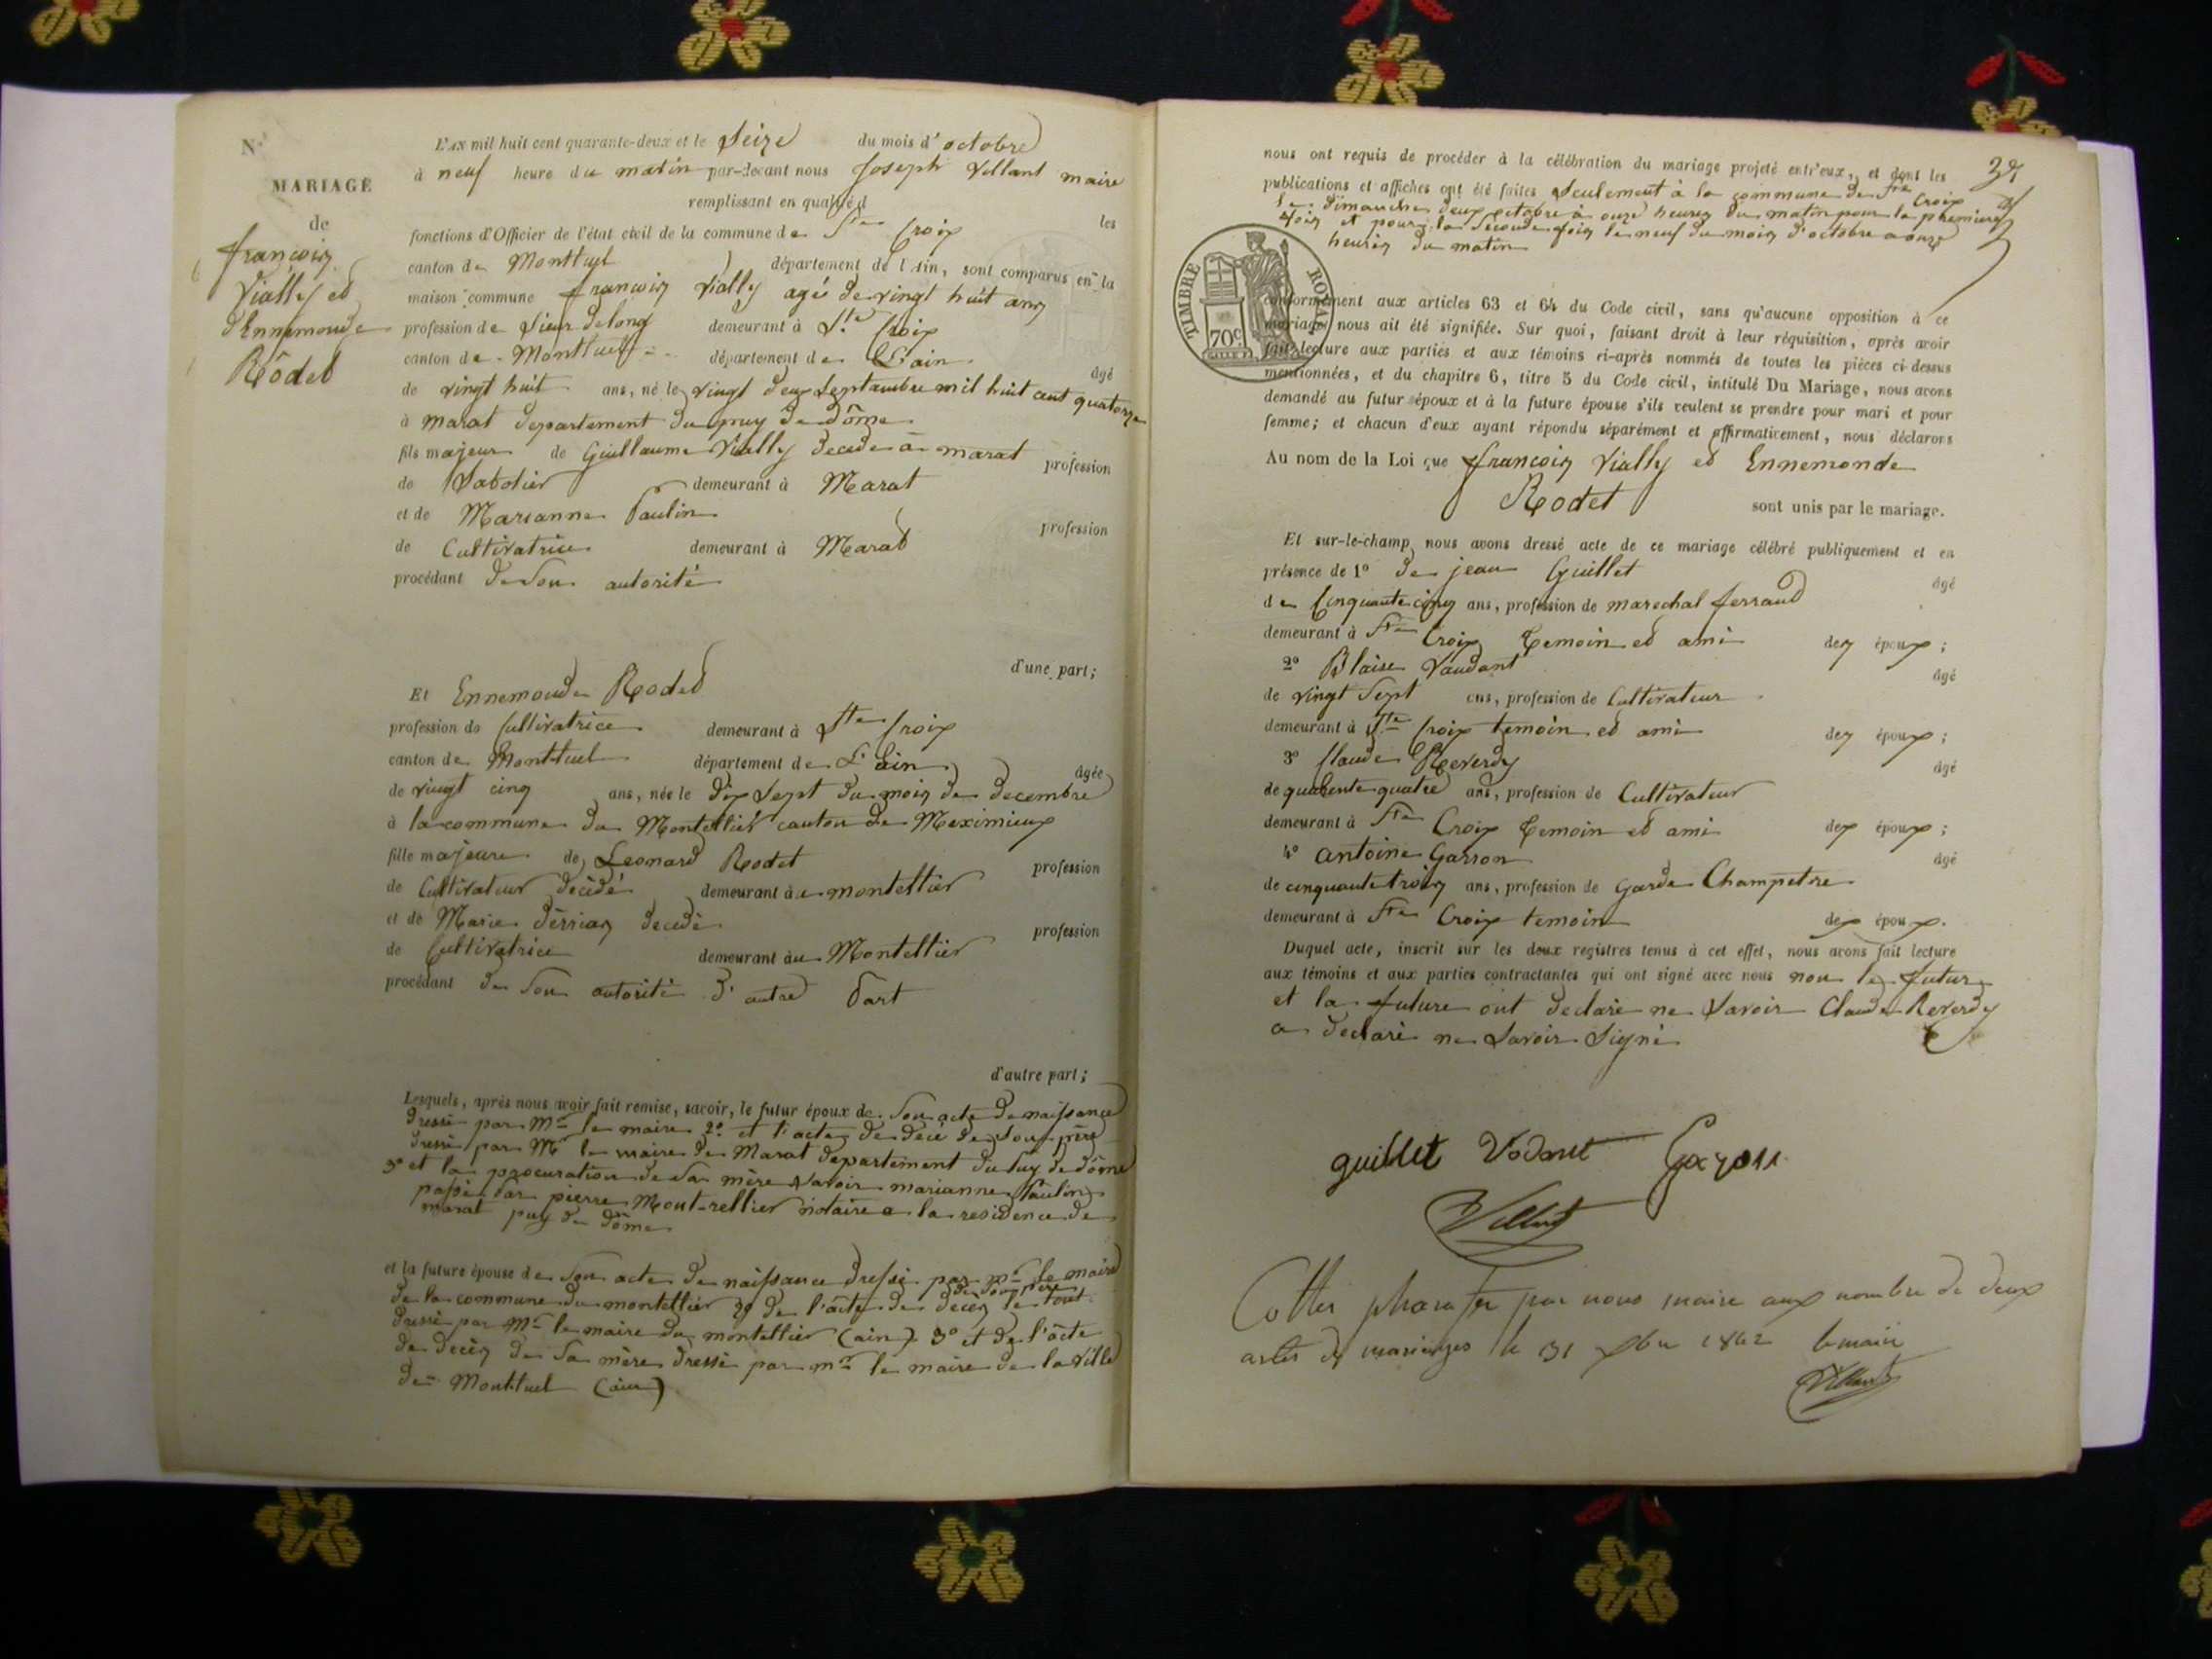 N.°
MARIAGE
de
françois
Vially et
d'Ennemonde
Rôdet
L'AN mil huit cent quarante-deux et le Seize du mois d'octobre
à neuf heure du matin par-devant nous Joseph Villant maire
remplissant en qualité d les
fonctions d'Officier de l'état civil de la commune de Ste Croix
canton de Montluel département de l'Ain, sont comparus en la
maison commune françois Vially agé de vingt huit ans
profession de Sieur de long demeurant à Ste Croix
canton de Montluel département de L'ain
âgé
de vingt huit ans, né le vingt deux Septambre mil huit cent quatorze
à marat departement du puy de dôme
fils majeur de Guillaume Vially decede a marat profession
de Sabotier demeurant à Marat
et de Marianne Paulin profession
de Cultivatrice demeurant à Marat
procédant de Son autorité
d'une part;
Et Ennemonde Rodet
profession de Cultivatrice demeurant à Ste Croix
canton de Montluel département de L'ain âgée
de vingt cinq ans, née le dix Sept du mois de decembre
à la commune du Montellier canton de Meximieux
fille majeure de Leonard Rodet profession
de Cultivateur décédé demeurant au montellier
et de Marie derrias decedé profession
de Cultivatrice demeurant au Montellier
procédant de Son autorité d'autre Part
d'autre part;
Lesquels, après nous avoir fait remise, savoir, le futur époux de Son acte de naissance
dressé par Mr le maire 2° et l'acte de décé de Son père
dressé par Mr le maire de Marat departement du Puy de dôme
3° et la procuration de Sa mère Savoir marianne Paulin
passé Par pierre Mont-rellier notaire a la residence de
marat puy de dôme
et la future épouse de Son acte de naissance dressé par mr le maire
de Son père
de la commune du montellier 2° de l'acte de décés le tout
dressé par Mr le maire du montellier (ain) 3° et de l'acte
de decés de Sa mère dressé par mr le maire de la Ville
de Montluel (ain)
nous ont requis de procéder à la célébration du mariage projeté entr'eux, et dont les
publications et affiches ont été faites Seulement à la commune de Ste Croix
Le dimanche deux octobre à onze heures du matin pour la premiere
fois et pour la Seconde fois le neuf du mois d'octobre a onze
heures du matin
TIMBRE ROYAL
70c
conformément aux articles 63 et 64 du Code civil, sans qu'aucune opposition à ce
mariage nous ait été signifiée. Sur quoi, faisant droit à leur réquisition, après avoir
fait lecture aux parties et aux témoins ci-après nommés de toutes les pièces ci-dessus
mentionnées, et du chapitre 6, titre 5 du Code civil, intitulé Du Mariage, nous avons
demandé au futur époux et à la future épouse s'ils veulent se prendre pour mari et pour
femme; et chacun d'eux ayant répondu séparément et affirmativement, nous déclarons
Au nom de la Loi que françois Vially et Ennemonde
Rodet sont unis par le mariage.
Et sur-le-champ nous avons dressé acte de ce mariage célébré publiquement et en
présence de 1° de jean Guillet âgé
de Cinquante cinq ans, profession de marechal ferrand
demeurant à Ste Croix temoin et ami des époux;
2° Blaise Vaudant âgé
de vingt Sept ans, profession de Cultivateur
demeurant à Ste Croix temoin et ami des époux;
3° Claude Reverdy âgé
de quarente quatre ans, profession de Cultivateur
demeurant à Ste Croix temoin et ami des époux;
4° antoine Garron âgé
de cinquante trois ans, profession de Garde Champetre
demeurant à Ste Croix temoin des époux.
Duquel acte, inscrit sur les deux registres tenus à cet effet, nous avons fait lecture
aux témoins et aux parties contractantes qui ont signé avec nous non le futur
et la future ont declaré ne Savoir Claude Reverdy
a declaré ne Savoir Signé
guillet Vodant Gayon
Villant
Cottes par nous maire aux nombre de deux
actes de mariages le 31 Xbre 1842 le maire
Villant